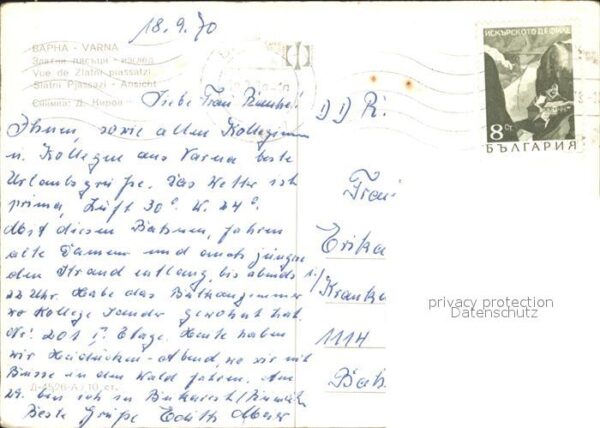 18.9.70
ВАРНА - VARNA
Златни пясъци - изглед
Vue de Zlatni piassatzi
Slatni Pjassazi - Ansicht
Снимка: Д. Киров
Liebe Frau
Ihnen, sowie allen Kolleginnen
u. Kollegen aus Varna beste
Urlaubsgrüße. Das Wetter ist
prima, Luft 30°. W. 24°.
Mit diesen Bahnen, fahren
alte Damen und auch jüngere
den Strand entlang, bis abends
22 Uhr. Habe das
wo Kollege Sander gewohnt hat.
Nr. 201 I. Etage. Heute haben
wir Heiducken-Abend, wo wir mit
Busse in den Wald fahren. Am
29. bin ich in Bukarest/Rumänien
Beste Grüße Edith
Д-4526-А/10 ст.
ИСКЪРСКОТО ДЕФИЛЕ
8 ст.
БЪЛГАРИЯ
DDR.
Frau
Erika
Kranke
1114
privacy protection
Datenschutz